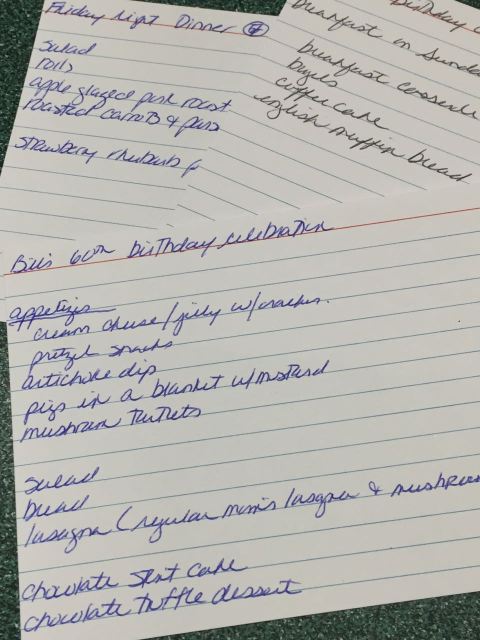 Friday night Dinner 7
salad
rolls
apple glazed pork roast
roasted carrots & peas
strawberry rhubarb p
birthday
breakfast on Sunda
breakfast casserole
bagels
coffee cake
english muffin bread
Bill's 60th birthday celebration
appetizers
cream cheese/jelly w/crackers
pretzel snacks
artichoke dip
pigs in a blanket w/mustard
mushroom turnovers
salad
bread
lasagna (regular mom's lasagna & mushroom
chocolate sheet cake
chocolate truffle dessert